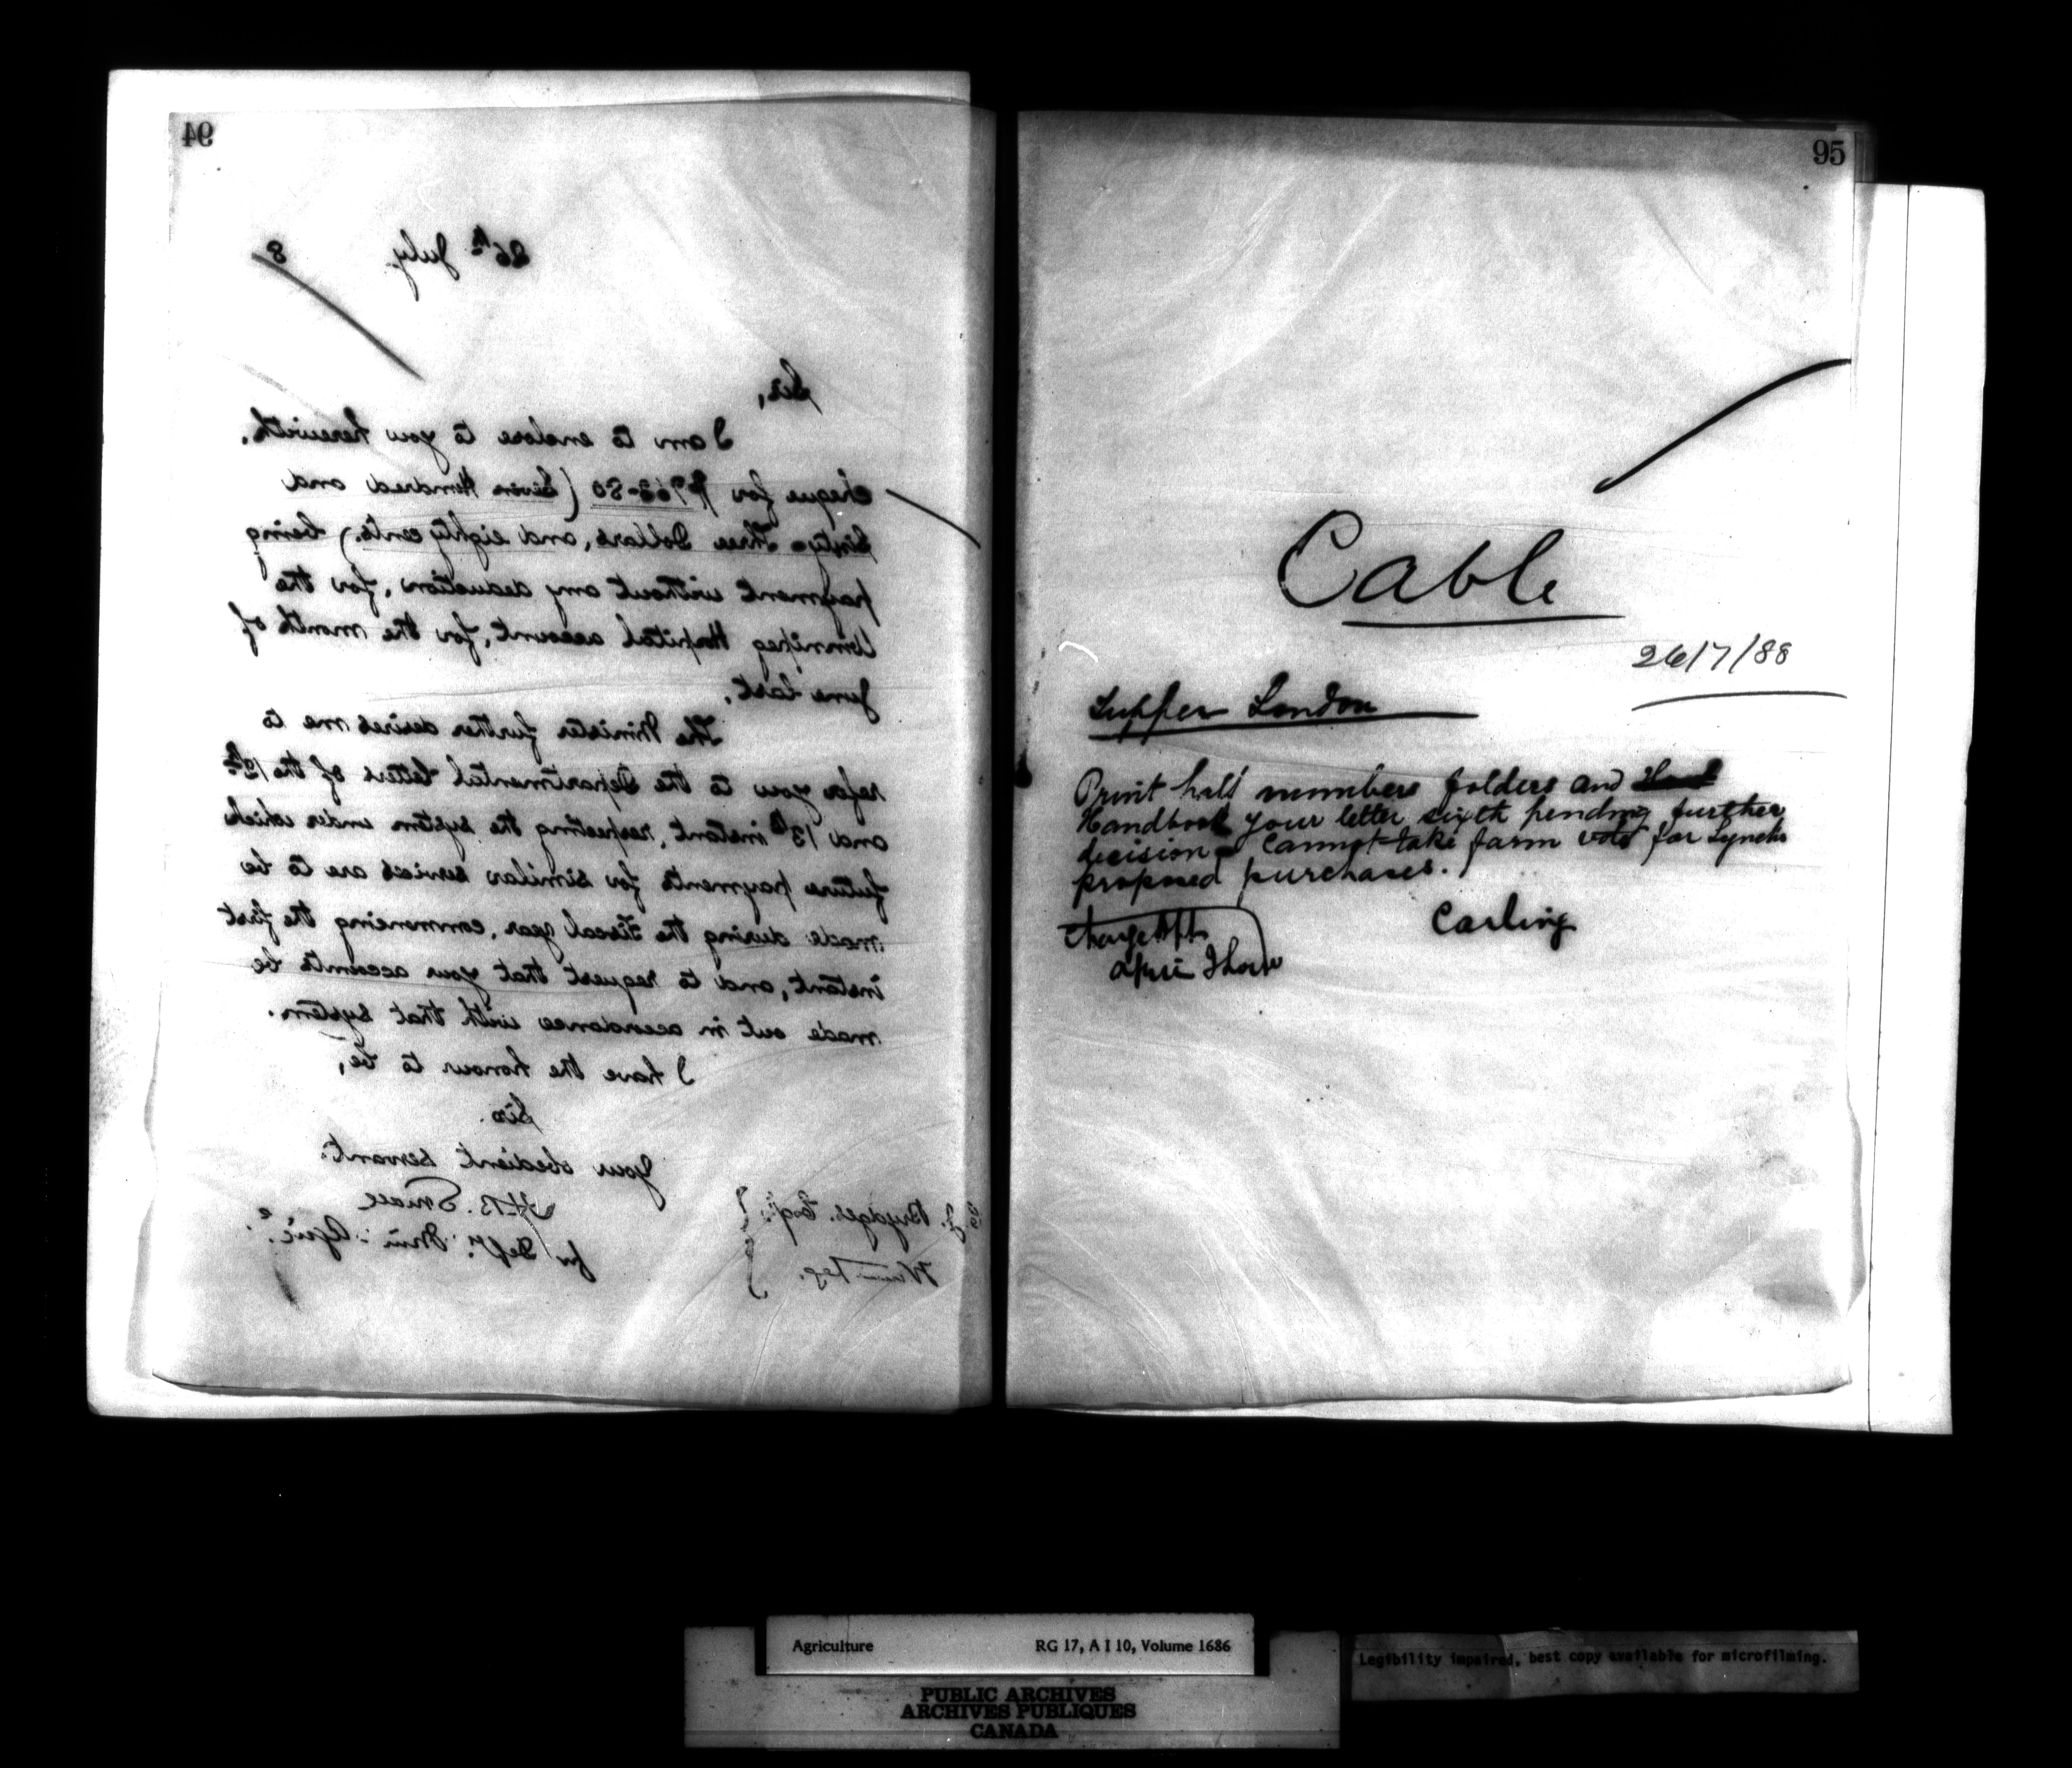 94
26th July 8
Sir,
I am to enclose to you herewith,
cheque for $763-80 (Seven Hundred and
Sixty-Three Dollars, and eighty cents,) being
payment without any deduction, for the
Winnipeg Hospital account, for the month of
June last.
The Minister further desires me to
refer you to the Departmental letters of the 12th
and 13th instant, respecting the system under which
future payments for similar services are to be
made during the Fiscal year, commencing the first
instant, and to request that your accounts be
made out in accordance with that system.
I have the honour to be,
Sir.
Your obedient servant.
H.B. Small
for Depy. Min: Agric.
Brydges. Esq.
Winnipeg.
95
Cable
26/7/88
Tupper London
Print half numbers folders and
Handbook your letter sixth pending further
decision Cannot take farm vote for Lynchs
proposed purchases.
Carling
Charge
Agric
Agriculture RG 17, A I 10, Volume 1686
PUBLIC ARCHIVES
ARCHIVES PUBLIQUES
CANADA
Legibility impaired, best copy available for microfilming.